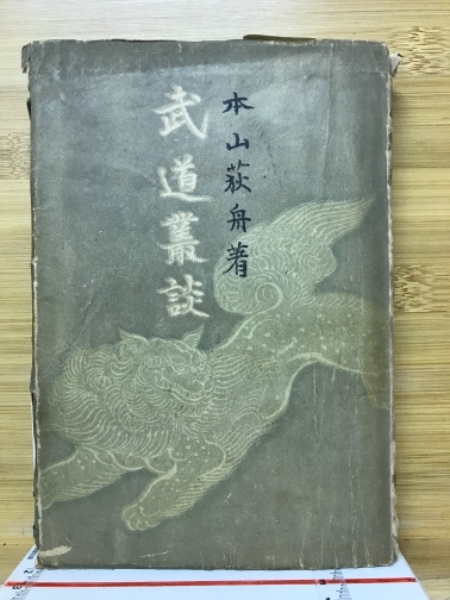 本山荻舟著
武道叢談